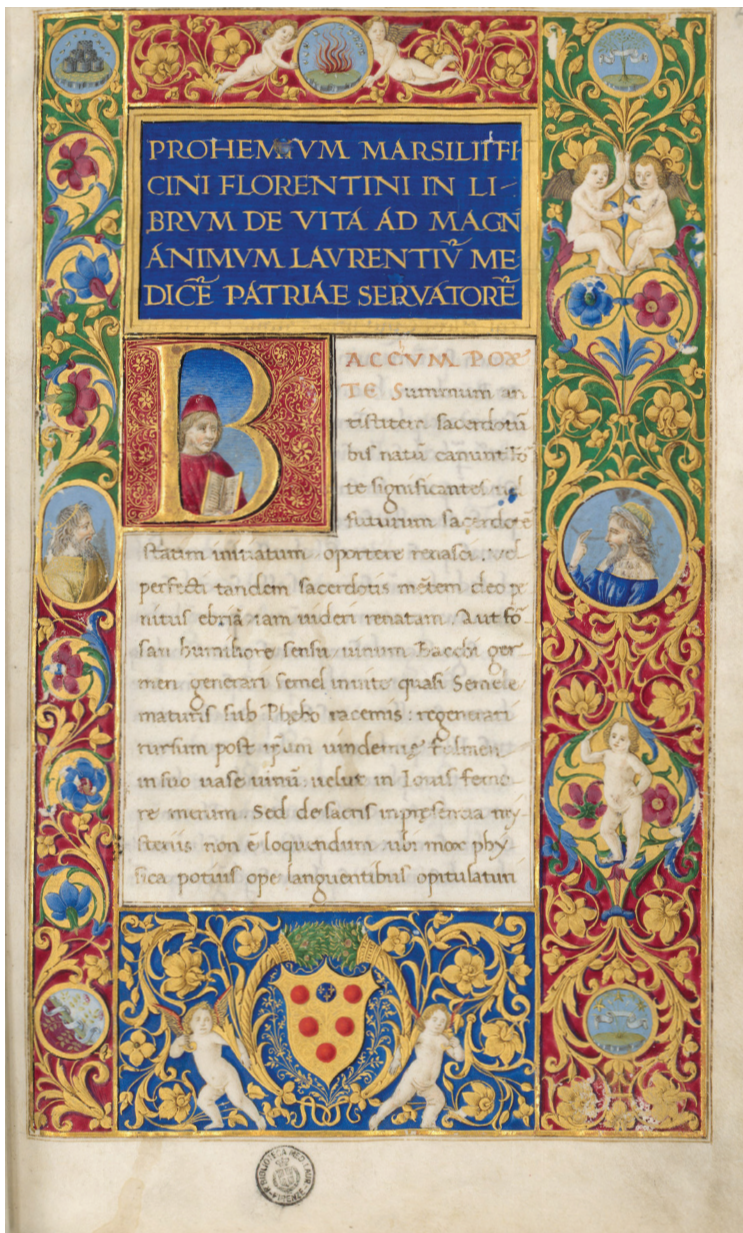 PROHEMIVM MARSILII FI
CINI FLORENTINI IN LI-
BRVM DE VITA AD MAGN
ANIMVM LAVRENTIV̄ ME
DICĒ PATRIAE SERVATORĒ
BACCVM POE
TE Summum an
tistitem sacerdotū
bis natū canunt fo
te significantes uel
futurum sacerdotē
statim initiatum oportere renasci. uel
perfecti tandem sacerdotis mētem deo pe
nitus ebriā iam uideri renatam. Aut fo
san humiliore sensu uinum Bacchi ger
men generari semel in uite quasi Semele
maturis sub Phebo racemis: regenerari
rursum post ipsum uindemię fulmen
in suo uase uinū: uelut in Iouis femo-
re merum. Sed de sacris in pręsentia my-
steriis non ē loquendum ubi mox phy
sica potius ope languentibus opitulaturi